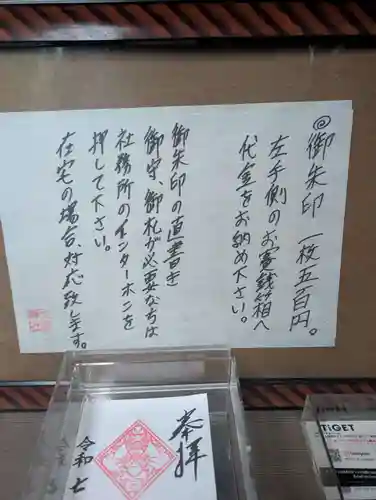 ◎御朱印 一枚五百円。
左手側のお賽銭箱へ
代金をお納め下さい。
御朱印の直書き
御守、御札が必要な方は
社務所のインターホンを
押して下さい。
在宅の場合、対応致します。
奉拝
令和七
TIGET